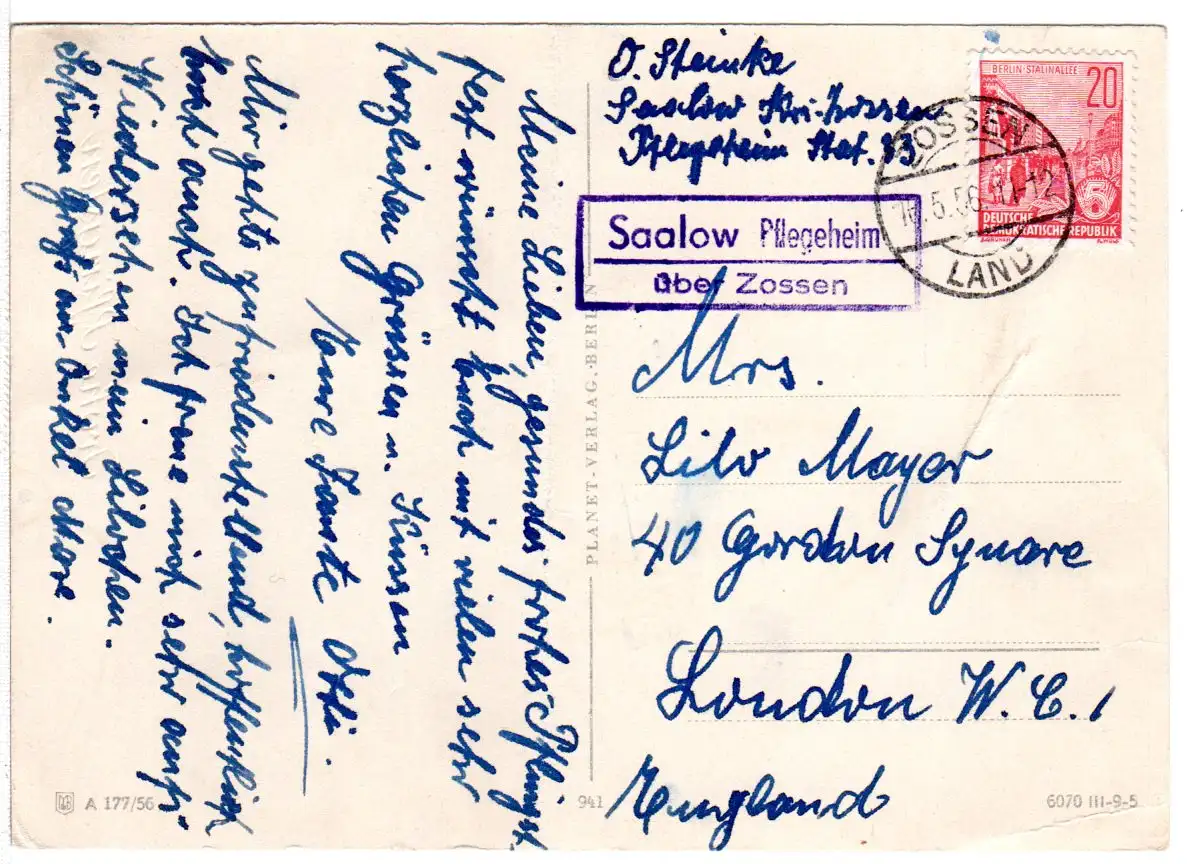 O. Steinke
Saalow Krs. Zossen
Pflegeheim Stat. 13
BERLIN-STALINALLEE
20
5
DEUTSCHE
DEMOKRATISCHE REPUBLIK
ZOSSEN
.5.56
LAND
Saalow Pflegeheim
über Zossen
Mrs.
Lilo Mayer
40 Gordon Square
London W.C.1
England
Meine Lieben, gesundes frohes Pfingst
fest wünscht Euch mit vielen sehr
herzlichen Grüssen u. Küssen
Eure Tante Otti.
Mir gehts zufriedenstellend, hoffentlich
Euch auch. Ich freue mich sehr aufs
Wiedersehen mein Lilochen.
Schönen Gruß an Onkel
PLANET-VERLAG, BERLIN
A 177/56
941
6070 III-9-5